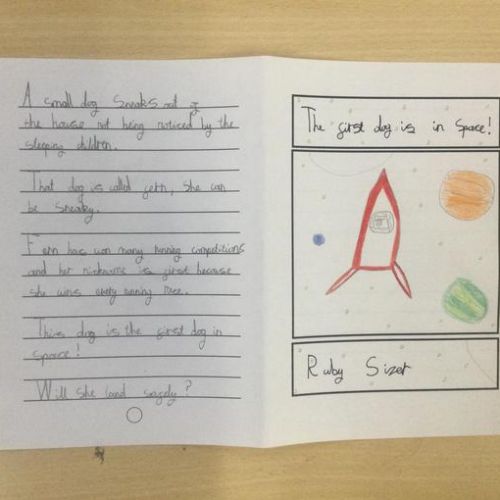 A small dog sneaks out of
the house not being noticed by the
sleeping children.
That dog is called fern, she can
be sneaky.
Fern has won many running competitions
and her nickname is first because
she wins every running race.
This dog is the first dog in
space!
Will she land safely?
The first dog is in space!
Ruby Sizer